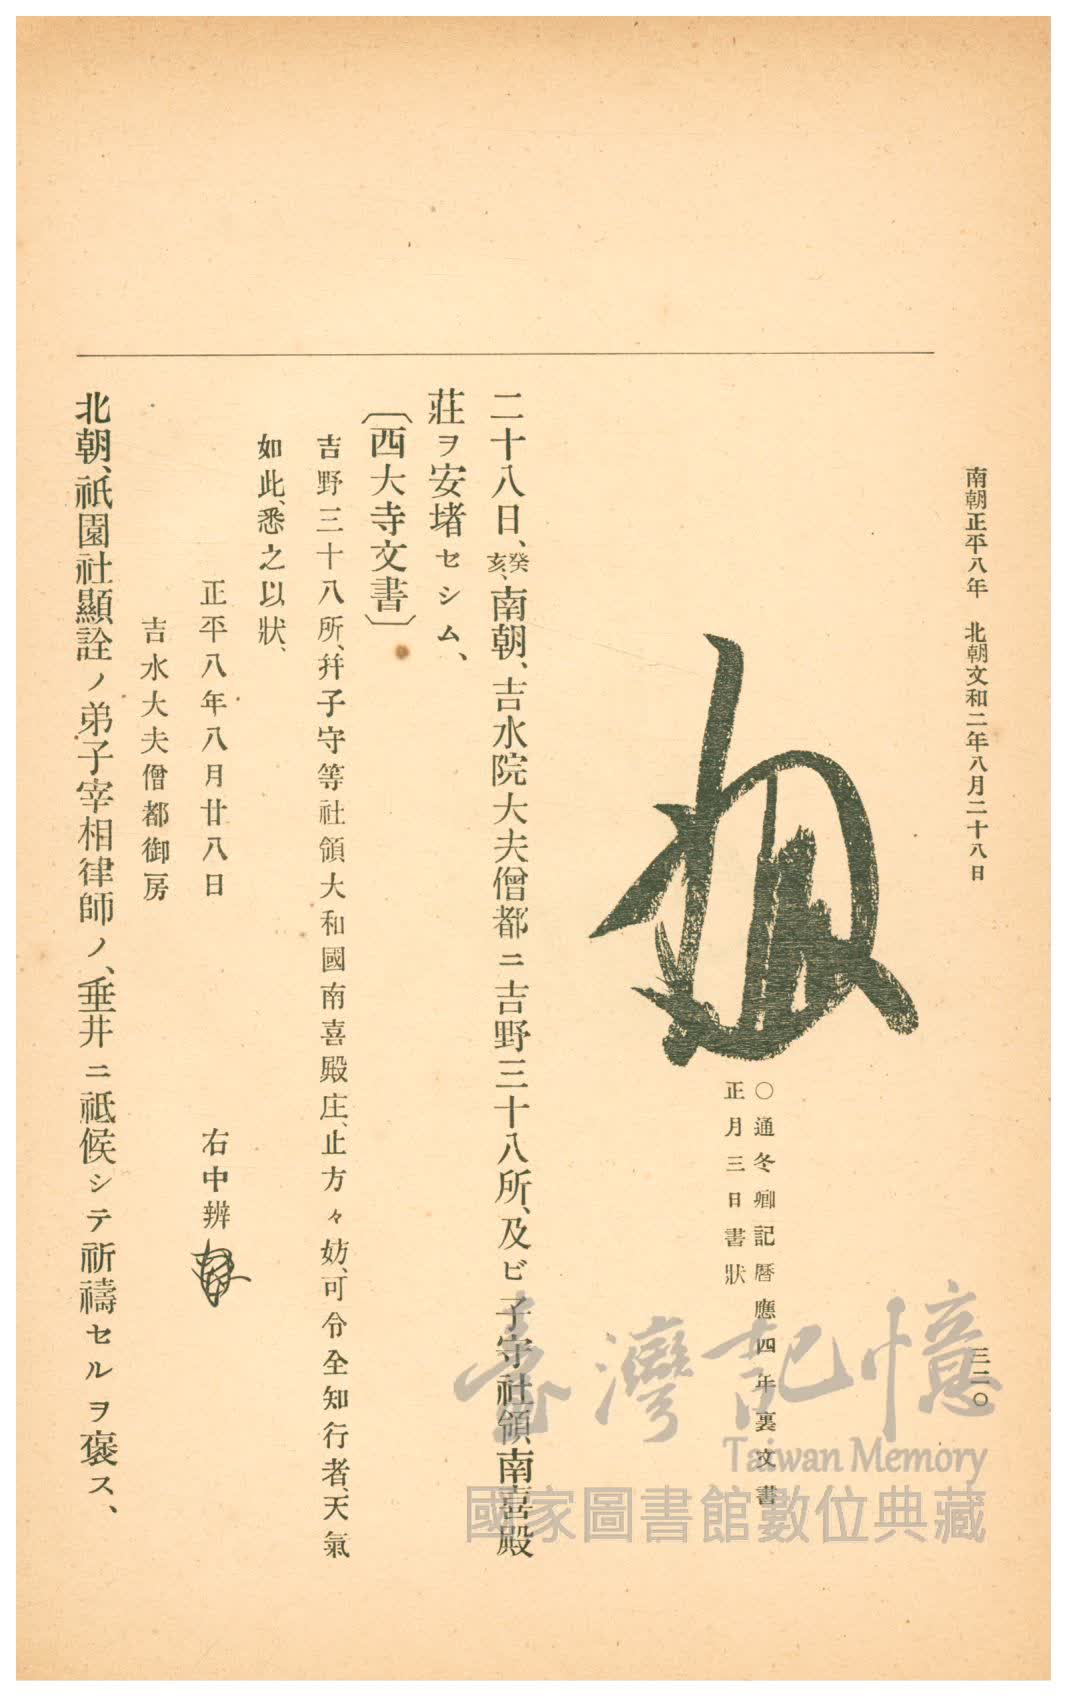 南朝正平八年　北朝文和二年八月二十八日
三二〇
〇通冬卿記曆應四年裏文書
正月三日書狀
二十八日、癸亥、南朝、吉水院大夫僧都ニ吉野三十八所、及ビ子守社領南喜殿
莊ヲ安堵セシム、
〔西大寺文書〕
吉野三十八所、幷子守等社領大和國南喜殿庄、止方々妨、可令全知行者、天氣
如此、悉之以狀、
正平八年八月廿八日
右中辨
吉水大夫僧都御房
北朝、祇園社顯詮ノ弟子宰相律師ノ、垂井ニ祗候シテ祈禱セルヲ褒ス、
臺灣記憶
Taiwan Memory
國家圖書館數位典藏